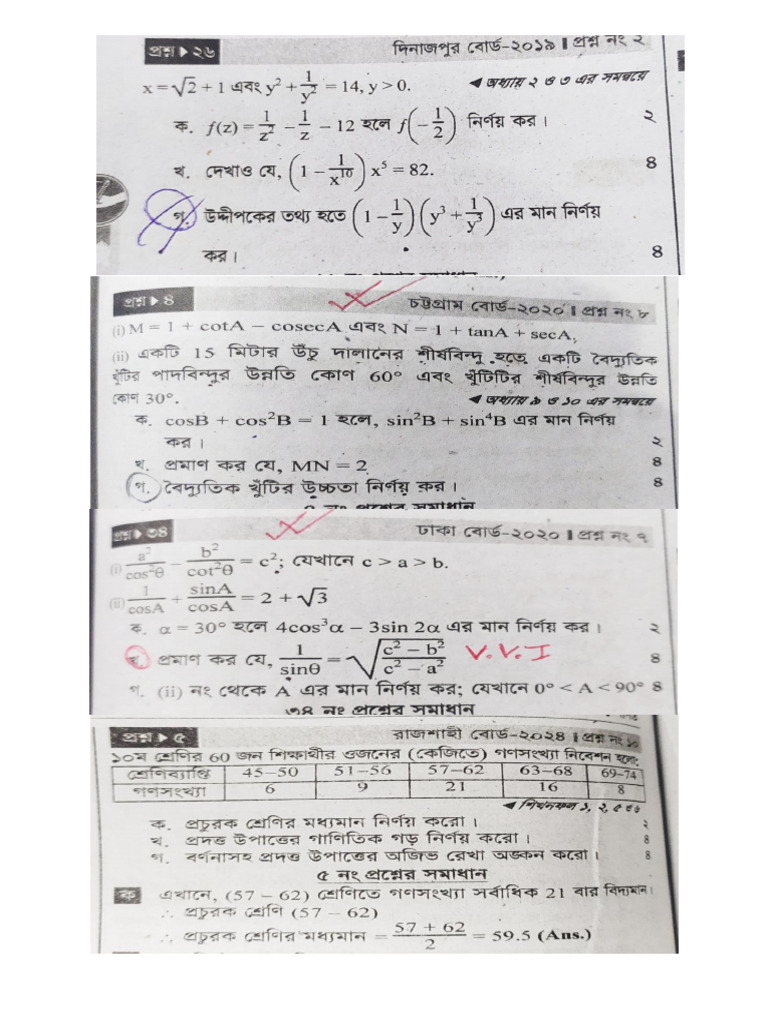 প্রশ্ন ▶ ২৬ দিনাজপুর বোর্ড-২০১৯ ❙ প্রশ্ন নং ২
x = √2 + 1 এবং y² + 1/y² = 14, y > 0. ◀ অধ্যায় ২ ও ৩ এর সমন্বয়ে
ক. f(z) = 1/z² − 1/z − 12 হলে f(−1/2) নির্ণয় কর। ২
খ. দেখাও যে, (1 − 1/x¹⁰) x⁵ = 82. 8
গ. উদ্দীপকের তথ্য হতে (1 − 1/y) (y³ + 1/y³) এর মান নির্ণয়
কর। 8
প্রশ্ন ▶ 8 চট্টগ্রাম বোর্ড-২০২০ ❙ প্রশ্ন নং ৮
(i) M = 1 + cotA − cosecA এবং N = 1 + tanA + secA,
(ii) একটি 15 মিটার উঁচু দালানের শীর্ষবিন্দু হতে একটি বৈদ্যুতিক
খুঁটির পাদবিন্দুর উন্নতি কোণ 60° এবং খুঁটিটির শীর্ষবিন্দুর উন্নতি
কোণ 30°. ◀ অধ্যায় ৯ ও ১০ এর সমন্বয়ে
ক. cosB + cos²B = 1 হলে, sin²B + sin⁴B এর মান নির্ণয়
কর। ২
খ. প্রমাণ কর যে, MN = 2 8
গ. বৈদ্যুতিক খুঁটির উচ্চতা নির্ণয় কর। 8
৪ নং প্রশ্নের সমাধান
প্রশ্ন ▶ ৩৪ ঢাকা বোর্ড-২০২০ ❙ প্রশ্ন নং ৭
(i) a²/cos²θ − b²/cot²θ = c²; যেখানে c > a > b.
(ii) 1/cosA + sinA/cosA = 2 + √3
ক. α = 30° হলে 4cos³α − 3sin 2α এর মান নির্ণয় কর। ২
খ. প্রমাণ কর যে, 1/sinθ = √((c² − b²)/(c² − a²)) V.V.I 8
গ. (ii) নং থেকে A এর মান নির্ণয় কর; যেখানে 0° < A < 90° 8
৩৪ নং প্রশ্নের সমাধান
প্রশ্ন ▶ ৫ রাজশাহী বোর্ড-২০২৪ ❙ প্রশ্ন নং ১০
১০ম শ্রেণির 60 জন শিক্ষার্থীর ওজনের (কেজিতে) গণসংখ্যা নিবেশন হলো:
শ্রেণিব্যাপ্তি 45–50 51–56 57–62 63–68 69–74
গণসংখ্যা 6 9 21 16 8
◀ শিখনফল ১, ২,
ক. প্রচুরক শ্রেণির মধ্যমান নির্ণয় করো। ২
খ. প্রদত্ত উপাত্তের গাণিতিক গড় নির্ণয় করো। 8
গ. বর্ণনাসহ প্রদত্ত উপাত্তের অজিভ রেখা অঙ্কন করো। 8
৫ নং প্রশ্নের সমাধান
ক এখানে, (57 – 62) শ্রেণিতে গণসংখ্যা সর্বাধিক 21 বার বিদ্যমান।
∴ প্রচুরক শ্রেণি (57 – 62)
∴ প্রচুরক শ্রেণির মধ্যমান = (57 + 62)/2 = 59.5 (Ans.)